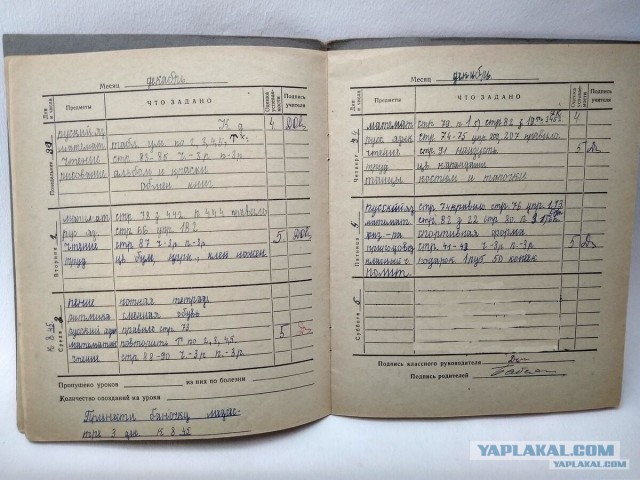 Месяц декабрь
Дни и числа Предметы ЧТО ЗАДАНО Оценка успеваемости Подпись учителя
Понедельник
русский яз. 4
математ табл. умн. по 2, 3, 4, 5,
чтение стр. ч-3р п-3р
рисование альбом и краски
обмен книг
Вторник
математ стр 78 з 442 п 444 правило
рус яз. стр 66 упр 182
чтение стр 87 ч-3р п-3р. 5
труд цв бум, ножн.
Среда к 8 45
пение нотная тетрадь
ритмика сменная обувь
русский язык правило стр 73 5
математ повторить Т по 2, 3, 4, 5.
чтение стр 88-90 ч-3р п-3р
Пропущено уроков на них по болезни
Количество опозданий на уроки
Принести баночку
3 к 8 45
Месяц декабрь
Дни и числа Предметы ЧТО ЗАДАНО Оценка успеваемости Подпись учителя
Четверг
математ стр 79 п 1 стр 82 з 4
рус. язык стр 74-75 упр 207 правило
чтение стр 91 наизусть 5
труд цв карандаши
танцы костюм и тапочки
Пятница
русский яз стр 74 правило стр 76 упр
математ стр 82 з 22 стр 80 п
физ-ра спортивная форма
природовед стр 41-42 ч-3р п-3р 5
классный ч подарок 1 руб. 50 копеек
полит.
Суббота
Подпись классного руководителя
Подпись родителей
YAPLAKAL.COM
YAPLAKAL.COM